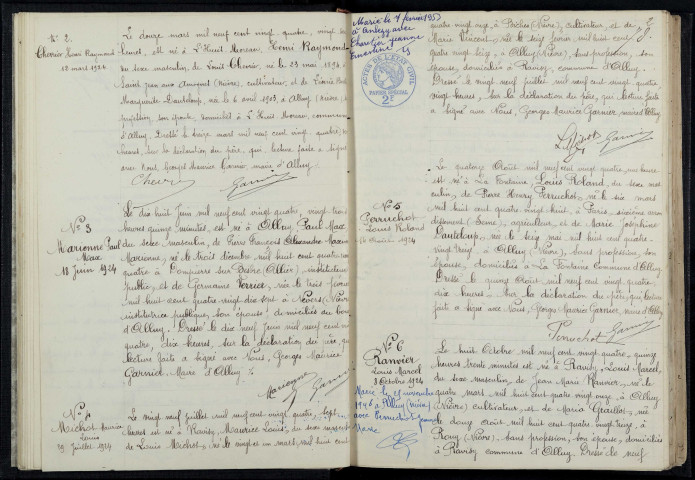 N° 2
Chevrier Henri Raymond
12 mars 1924
Le douze mars mil neuf cent vingt quatre, vingt
heures, est né à L'Huis Moreau, Henri Raymond
du sexe masculin, de Louis Chevrier, né le 23 mai 1894 à
Saint Jean aux Amognes (Nièvre), cultivateur, et de
Marguerite Dauteloup, née le 6 avril 1903, à Alluy (Nièvre)
profession, son épouse, domiciliés à L'Huis Moreau, commune
d'Alluy. Dressé le treize mars mil neuf cent vingt quatre,
heures, sur la déclaration du père, qui lecture faite a signé
avec Nous, Georges Maurice Garnier, maire d'Alluy.
N° 3
Marionne Paul
Max
18 Juin 1924
Le dix huit Juin mil neuf cent vingt quatre, vingt trois
heures quinze minutes, est né à Alluy, Paul Max
du sexe masculin, de Pierre François Alexandre
Marionne, né le trois décembre mil huit cent quatre
quatre à Dompierre sur Besbre (Allier), instituteur
public, et de Germaine Verrier, née le trois février
mil huit cent quatre vingt dix sept à Nevers (Nièvre)
institutrice publique, son épouse, domiciliés au bourg
d'Alluy. Dressé le dix neuf Juin mil neuf cent vingt
quatre, dix heures, sur la déclaration du père, qui
lecture faite a signé avec Nous, Georges Maurice
Garnier, Maire d'Alluy
Marionne
N° 4
Michot Maurice
Louis
29 Juillet 1924
Le vingt neuf juillet mil neuf cent vingt quatre, sept
heures est né à Ravisy, Maurice Louis, du sexe masculin
de Louis Michot, né le vingt un mars mil huit cent
Marié le 7 février 1953
à Anlezy avec
Jeanne
Ernestine
ACTES DE L'ÉTAT CIVIL
PAPIER SPÉCIAL
2F
quatre vingt onze, à Biches (Nièvre), cultivateur, et de
Marie Vincent, née le sept février mil huit cent
quatre vingt, à Alluy (Nièvre), sans profession, son
épouse, domiciliés à Ravisy, commune d'Alluy.
Dressé le vingt neuf juillet mil neuf cent vingt quatre,
vingt heures, sur la déclaration du père, qui lecture faite
a signé avec Nous, Georges Maurice Garnier, maire d'Alluy
L. Michot
N° 5
Perruchot
Louis Roland
14 Août 1924
Le quatorze Août mil neuf cent vingt quatre, une heure
est né à La Fontaine, Louis Roland, du sexe mas
culin, de Pierre Henry Perruchot, né le six mai
mil huit cent quatre vingt huit, à Paris, sixième arron
dissement (Seine), agriculteur, et de Marie Joséphine
Dauteloup, née le six mai mil huit cent quatre
vingt treize à Alluy (Nièvre), sans profession, son
épouse, domiciliés à La Fontaine Commune d'Alluy
Dressé le quinze Août mil neuf cent vingt quatre,
dix heures, sur la déclaration du père, qui lecture
faite a signé avec Nous, Georges Maurice Garnier, maire d'Alluy
Perruchot
N° 6
Ranvier
Louis Marcel
8 Octobre 1924
Marié le 23 novembre
1946 à Alluy (Nièvre)
avec Perruchot
Marie
Le huit Octobre mil neuf cent vingt quatre, quinze
heures trente minutes est né à Ravisy, Louis Marcel,
du sexe masculin de Jean Marie Ranvier, né le
quatre mars mil huit cent quatre vingt onze, à Alluy
(Nièvre) cultivateur et de Maria Graillot, née
le douze août mil huit cent quatre vingt treize, à
Rouy (Nièvre), sans profession, son épouse, domiciliés
à Ravisy commune d'Alluy. Dressé le neuf